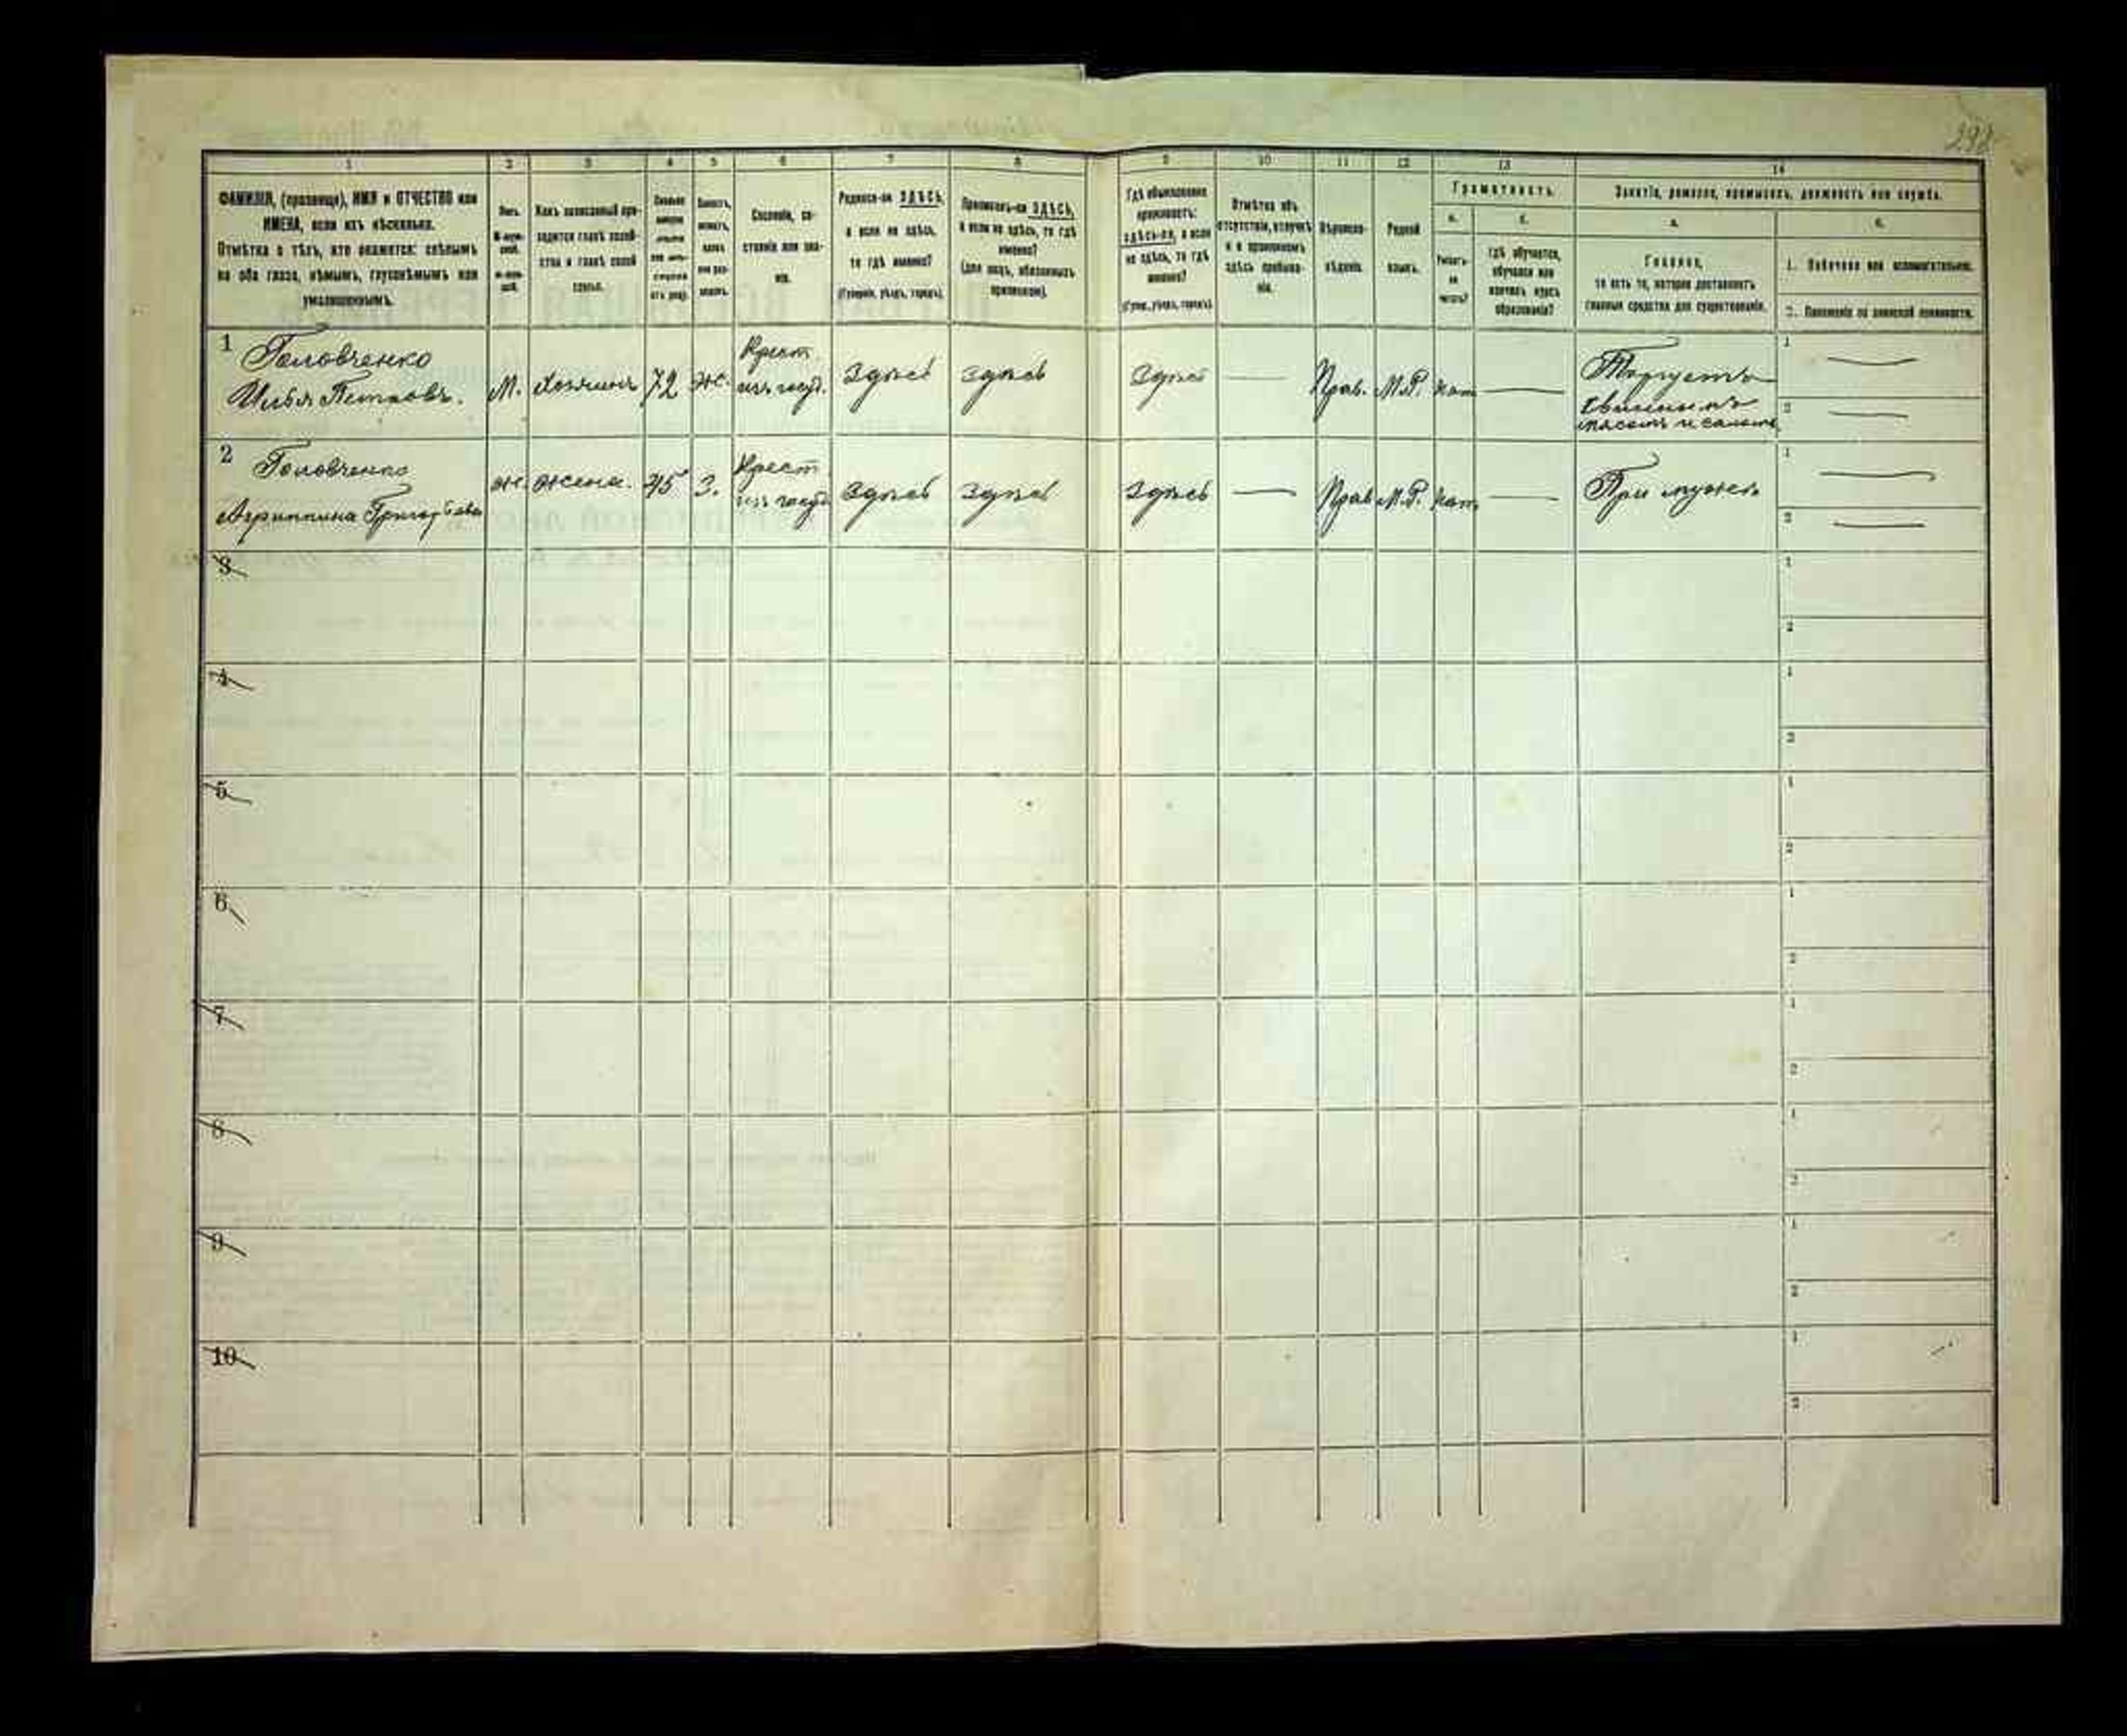 298
1 2 3 4 5 6 7 8 9 10 11 12 13 14
ФАМИЛІЯ, (прозвище), ИМЯ и ОТЧЕСТВО или
ИМЕНА, если ихъ нѣсколько.
Отмѣтка о тѣхъ, кто окажется: слѣпымъ
на оба глаза, нѣмымъ, глухонѣмымъ или
умалишеннымъ.
Полъ.
Какъ записанный при-
ходится главѣ хозяй-
ства и главѣ своей
семьи.
Сословіе, со-
стояніе или зва-
ніе.
Родился-ли ЗДѢСЬ,
а если не здѣсь,
то гдѣ именно?
(Губернія, уѣздъ, городъ).
Приписанъ-ли ЗДѢСЬ,
а если не здѣсь, то гдѣ
именно?
(для лицъ, обязанныхъ
припискою).
Гдѣ обыкновенно
проживаетъ:
здѣсь-ли, а если
не здѣсь, то гдѣ
именно?
(Губер., уѣздъ, городъ).
Отмѣтка объ
отсутствіи, отлучкѣ
и о временномъ
здѣсь пребыва-
ніи.
Вѣроиспо-
вѣданіе.
Родной
языкъ.
Грамотность.
а. б.
Умѣетъ-
ли
читать?
Гдѣ обучается,
обучался или
кончилъ курсъ
образованія?
Занятіе, ремесло, промыселъ, должность или служба.
а. б.
Главное,
то есть то, которое доставляетъ
главныя средства для существованія.
1. Побочное или вспомогательное.
2. Положеніе по воинской повинности.
1 Головченко
Илья Петровъ. М. Хозяинъ 72 Ж. Крест. изъ госуд. Здѣсь Здѣсь Здѣсь — Прав. М.Р. нѣт — Торгуетъ
свиннымъ
мясомъ и саломъ
1 —
2 —
2 Головченко
Агриппина Григорьева ж. жена. 45 З. Крест. изъ госуд. Здѣсь Здѣсь Здѣсь — Прав М.Р. нѣт — При мужѣ
1 —
2 —
3 1
2
4 1
2
5 1
2
6 1
2
7 1
2
8 1
2
9 1
2
10 1
2